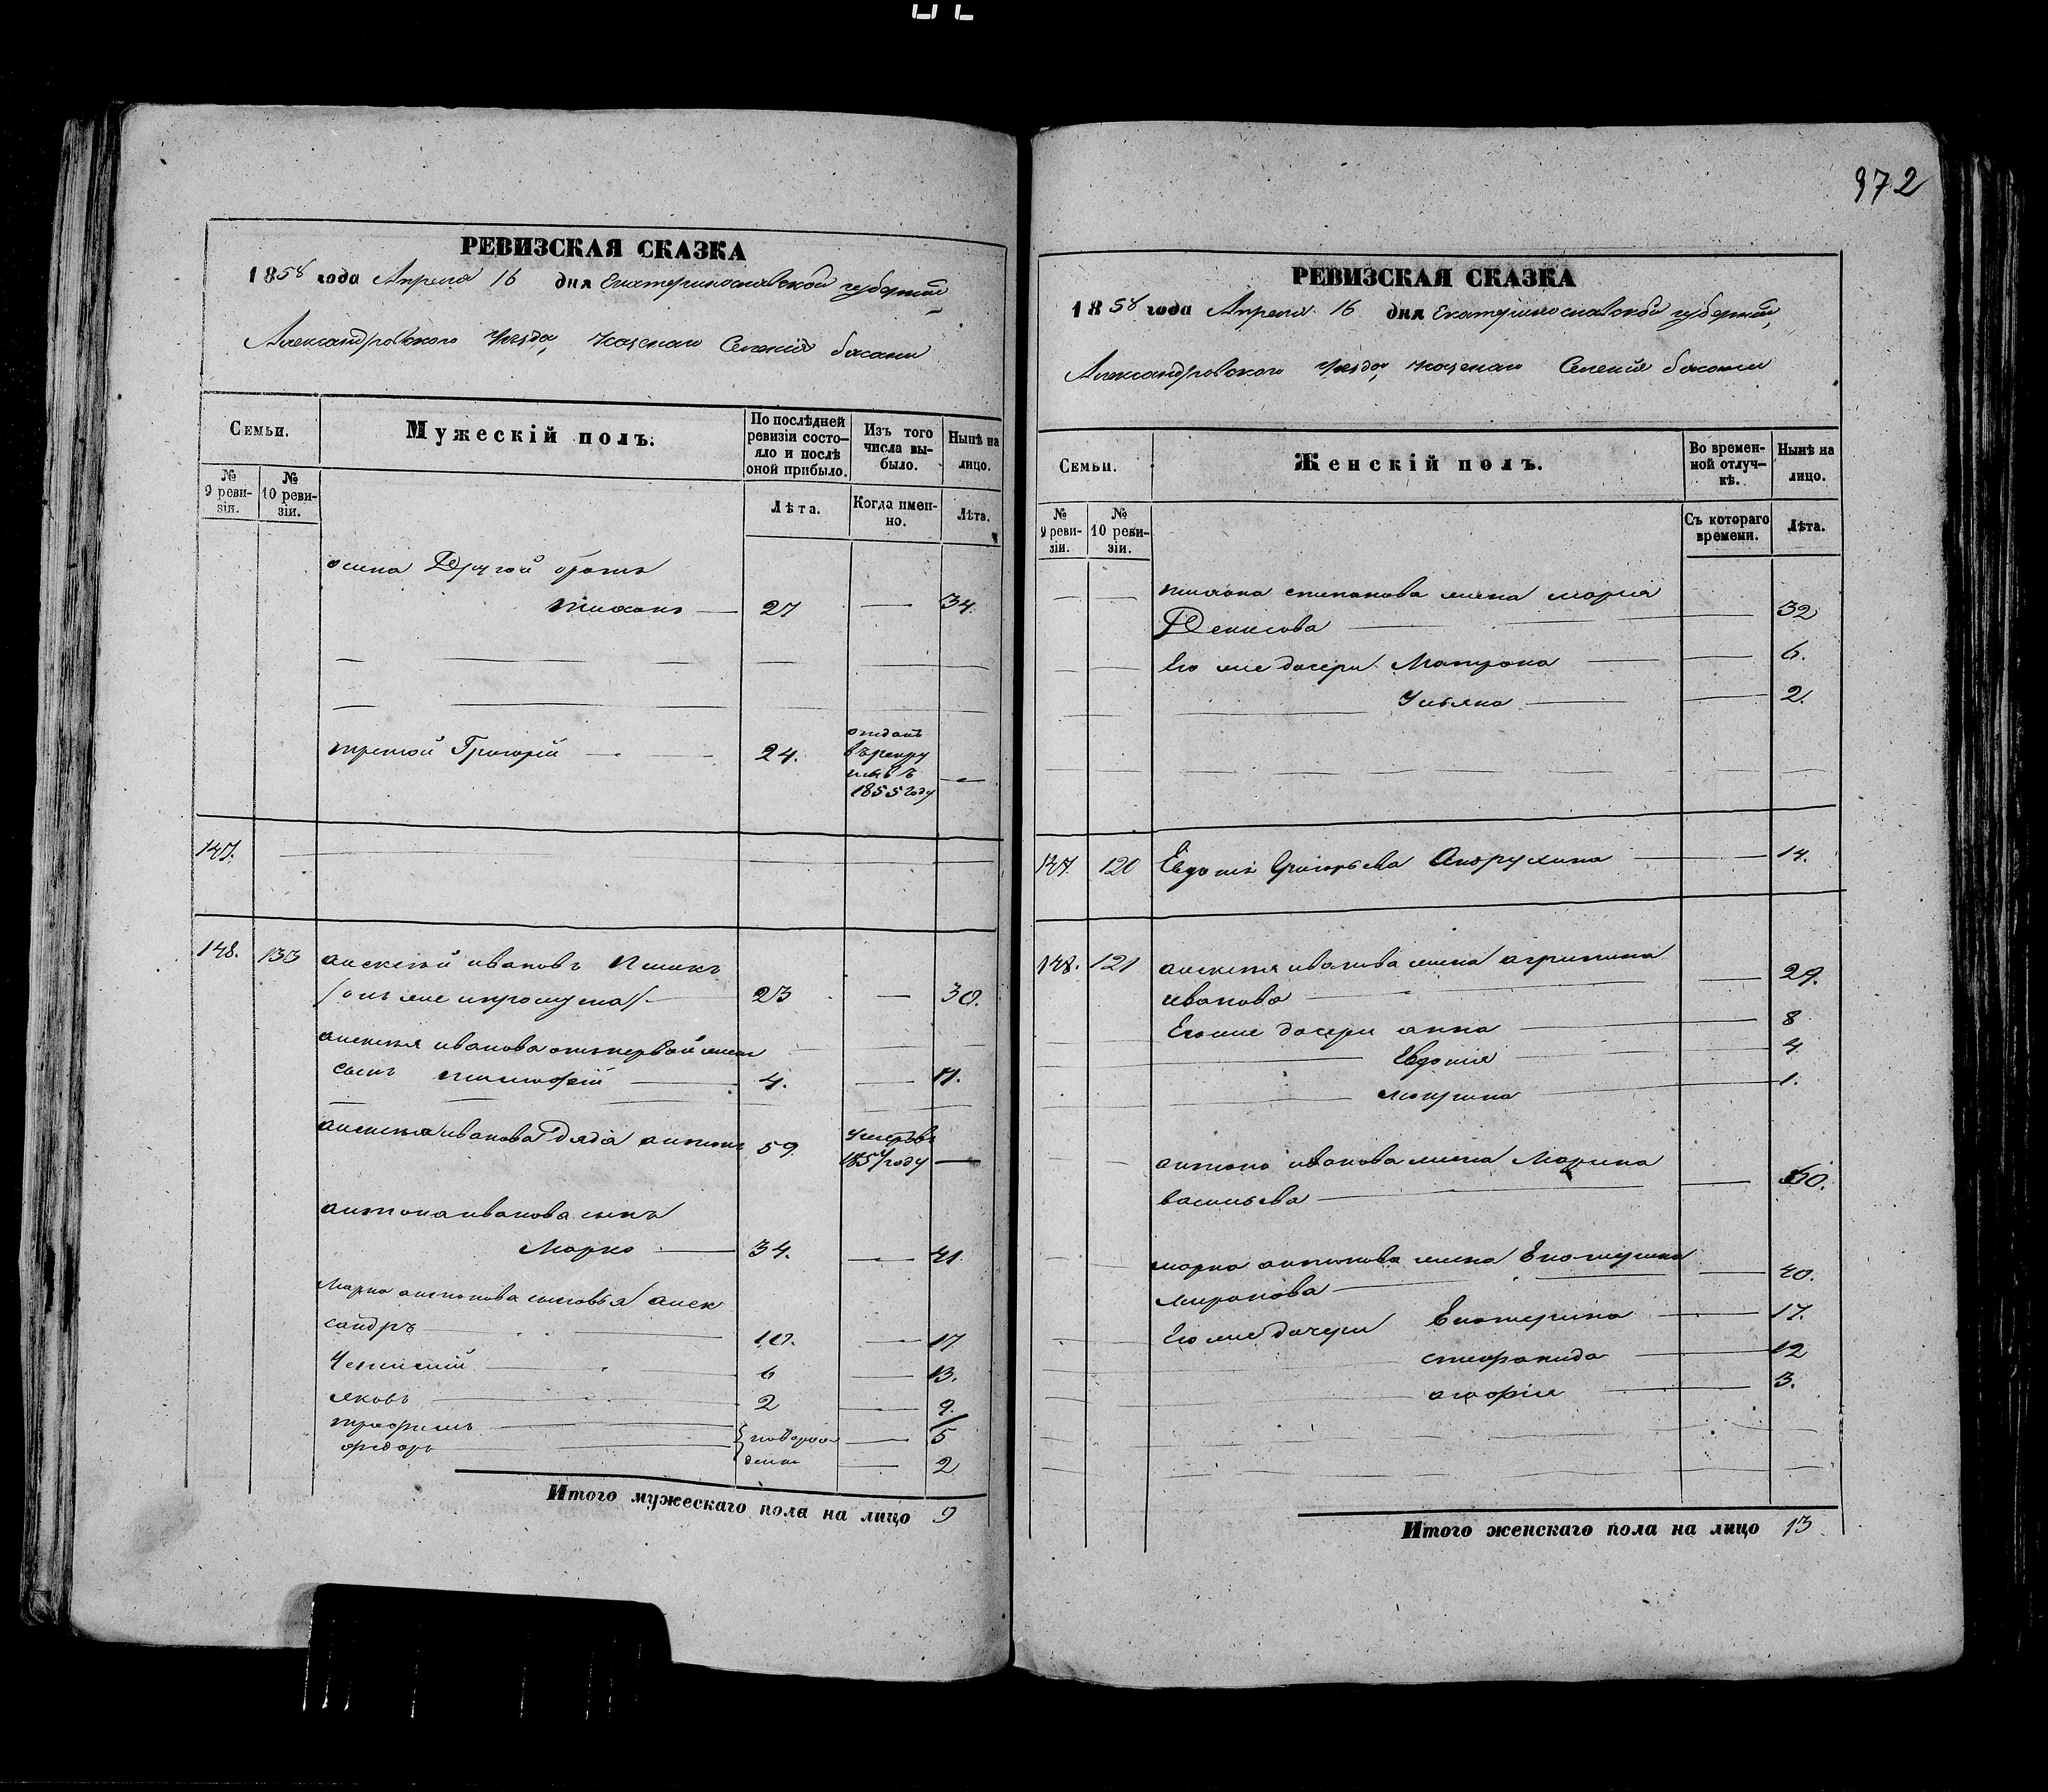 972
РЕВИЗСКАЯ СКАЗКА
1858 года Апреля 16 дня Екатеринославской губернии
Александровского Уезда, казенаго Селенія басани
Семьи.
Мужескій полъ.
По послѣдней ревизіи состояло и послѣ оной прибыло.
Изъ того числа выбыло.
Нынѣ на лицо.
№ 9 ревизіи.
№ 10 ревизіи.
Лѣта.
Когда именно.
Лѣта.
осипа Другой братъ
тихонъ — 27 — 34.
третій Григорій — 24. отданъ
въ рекру
ты въ
1855 году —
147.
148. 133 алексѣй ивановъ
23 — 30.
алексѣя иванова отъ первой жены
сынъ тимофѣй — 4. — 11.
алексѣя иванова дядя антонъ 59. умеръ въ
1854 году —
антона иванова сынъ
Марко — 34. — 41.
Марка антонова сыновья алек
сандръ — 10. — 17.
6 — 13.
яковъ — 2 — 9.
трофимъ — новорож — 5
федоръ — денны — 2
Итого мужескаго пола на лицо 9
РЕВИЗСКАЯ СКАЗКА
1858 года Апреля 16 дня Екатеринославской губернии,
Александровского Уезда, казенаго Селенія басани
Семьи.
Женскій полъ.
Во временной отлучкѣ.
Нынѣ на лицо.
№ 9 ревизіи.
№ 10 ревизіи.
Съ котораго времени.
Лѣта.
тихона степанова жена марія
Денисова — 32
Его же дочери Матрона — 6.
Ульяна — 2.
147. 120 Евдокія Григорьева — 14.
148. 121 алексѣя иванова жена агрипина
иванова — 29.
Его же дочери анна — 8
Евдокія — 4
1.
антона иванова жена Марина
васильева — 60.
марка антонова жена Екатерина
миронова — 40.
Его же дочери Екатерина — 17.
степанида — 12
агафія — 3.
Итого женскаго пола на лицо 13